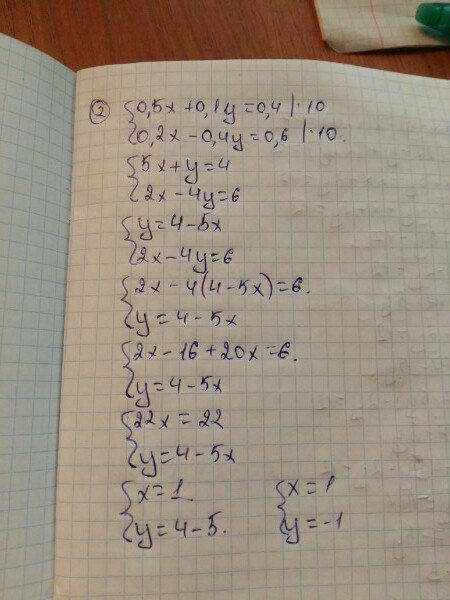 ② 0,5x + 0,1y = 0,4 | · 10
0,2x - 0,4y = 0,6 | · 10.
5x + y = 4
2x - 4y = 6
y = 4 - 5x
2x - 4y = 6
2x - 4(4 - 5x) = 6.
y = 4 - 5x
2x - 16 + 20x = 6.
y = 4 - 5x
22x = 22
y = 4 - 5x
x = 1. x = 1
y = 4 - 5. y = -1